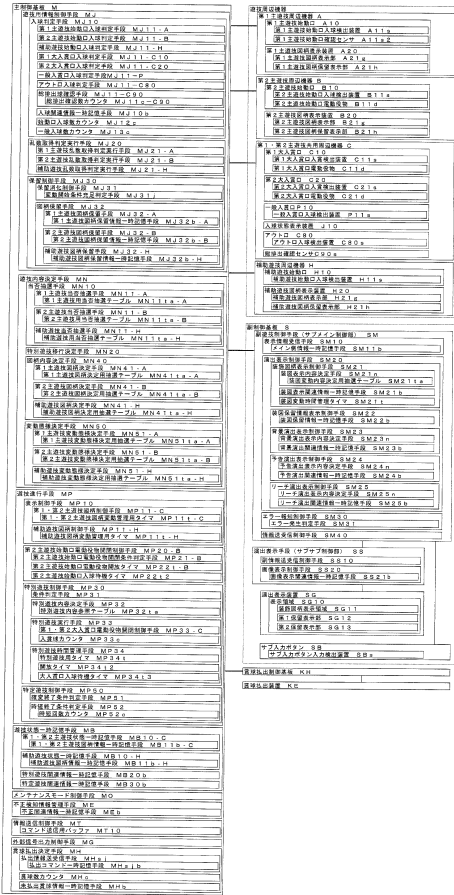 主制御基板 M
遊技用情報制御手段 MJ
入球判定手段 MJ10
第1主遊技始動口入球判定手段 MJ11-A
第2主遊技始動口入球判定手段 MJ11-B
補助遊技始動口入球判定手段 MJ11-H
第1大入賞口入球判定手段 MJ11-C10
第2大入賞口入球判定手段 MJ11-C20
一般入賞口入球判定手段MJ11-P
アウト口入球判定手段 MJ11-C80
総排出確認手段 MJ11-C90
総排出確認数カウンタ MJ11c-C90
入球関連情報一時記憶手段 MJ10b
始動口入球数カウンタ MJ12c
一般入球数カウンタ MJ13c
乱数取得判定実行手段 MJ20
第1主遊技乱数取得判定実行手段 MJ21-A
第2主遊技乱数取得判定実行手段 MJ21-B
補助遊技乱数取得判定実行手段 MJ21-H
保留制御手段 MJ30
保留消化制御手段 MJ31
変動開始条件充足判定手段 MJ31j
図柄保留手段 MJ32
第1主遊技図柄保留手段 MJ32-A
第1主遊技図柄保留情報一時記憶手段 MJ32b-A
第2主遊技図柄保留手段 MJ32-B
第2主遊技図柄保留情報一時記憶手段 MJ32b-B
補助遊技図柄保留手段 MJ32-H
補助遊技図柄保留情報一時記憶手段 MJ32b-H
遊技内容決定手段 MN
当否抽選手段 MN10
第1主遊技当否抽選手段 MN11-A
第1主遊技用当否抽選テーブル MN11ta-A
第2主遊技当否抽選手段 MN11-B
第2主遊技用当否抽選テーブル MN11ta-B
補助遊技当否抽選手段 MN11-H
補助遊技用当否抽選テーブル MN11ta-H
特別遊技移行決定手段 MN20
図柄内容決定手段 MN40
第1主遊技図柄決定手段 MN41-A
第1主遊技図柄決定用抽選テーブル MN41ta-A
第2主遊技図柄決定手段 MN41-B
第2主遊技図柄決定用抽選テーブル MN41ta-B
補助遊技図柄決定手段 MN41-H
補助遊技図柄決定用抽選テーブル MN41ta-H
変動態様決定手段 MN50
第1主遊技変動態様決定手段 MN51-A
第1主遊技変動態様決定用抽選テーブル MN51ta-A
第2主遊技変動態様決定手段 MN51-B
第2主遊技変動態様決定用抽選テーブル MN51ta-B
補助遊技変動態様決定手段 MN51-H
補助遊技変動態様決定用抽選テーブル MN51ta-H
遊技進行手段 MP
表示制御手段 MP10
第1・第2主遊技図柄制御手段 MP11-C
第1・第2主遊技図柄変動管理用タイマ MP11t-C
補助遊技図柄制御手段 MP11-H
補助遊技図柄変動管理用タイマ MP11t-H
第2主遊技始動口電動役物開閉制御手段 MP20-B
第2主遊技始動口電動役物開閉条件判定手段 MP21-B
第2主遊技始動口電動役物開放タイマ MP22t-B
第2主遊技始動口入球待機タイマ MP22t2
特別遊技制御手段 MP30
条件判定手段 MP31
特別遊技内容決定手段 MP32
特別遊技内容参照テーブル MP32ta
特別遊技実行手段 MP33
第1・第2大入賞口電動役物開閉制御手段 MP33-C
入賞球カウンタ MP33c
特別遊技時間管理手段 MP34
特別遊技用タイマ MP34t
開放タイマ MP34t2
大入賞口入球待機タイマ MP34t3
特定遊技制御手段 MP50
確変終了条件判定手段 MP51
時短終了条件判定手段 MP52
時短回数カウンタ MP52c
遊技状態一時記憶手段 MB
第1・第2主遊技状態一時記憶手段 MB10-C
第1・第2主遊技図柄情報一時記憶手段 MB11b-C
補助遊技状態一時記憶手段 MB10-H
補助遊技図柄情報一時記憶手段 MB11b-H
特別遊技関連情報一時記憶手段 MB20b
特定遊技関連情報一時記憶手段 MB30b
メンテナンスモード制御手段 MO
不正検知情報管理手段 ME
不正関連情報一時記憶手段 MEb
情報送信制御手段 MT
コマンド送信用バッファ MT10
外部信号出力制御手段 MG
賞球払出決定手段 MH
払出情報送受信手段 MHsj
払出コマンド一時記憶手段 MHsjb
賞球数カウンタ MHc
未払出賞球情報一時記憶手段 MHb
遊技周辺機器
第1主遊技周辺機器 A
第1主遊技始動口 A10
第1主遊技始動口入球検出装置 A11s
第1主遊技始動口確認センサ A11s2
第1主遊技図柄表示装置 A20
第1主遊技図柄表示部 A21g
第1主遊技図柄保留表示部 A21h
第2主遊技周辺機器 B
第2主遊技始動口 B10
第2主遊技始動口入球検出装置 B11s
第2主遊技始動口電動役物 B11d
第2主遊技図柄表示装置 B20
第2主遊技図柄表示部 B21g
第2主遊技図柄保留表示部 B21h
第1・第2主遊技共用周辺機器 C
第1大入賞口 C10
第1大入賞口入賞検出装置 C11s
第1大入賞口電動役物 C11d
第2大入賞口 C20
第2大入賞口入賞検出装置 C21s
第2大入賞口電動役物 C21d
一般入賞口P10
一般入賞口入球検出装置 P11s
入球状態表示装置 J10
アウト口 C80
アウト口入球検出装置 C80s
総排出確認センサC90s
補助遊技周辺機器 H
補助遊技始動口 H10
補助遊技始動口入球検出装置 H11s
補助遊技図柄表示装置 H20
補助遊技図柄表示部 H21g
補助遊技図柄保留表示部 H21h
副制御基板 S
副遊技制御手段（サブメイン制御部） SM
表示情報受信手段 SM10
メイン側情報一時記憶手段 SM11b
演出表示制御手段 SM20
装飾図柄表示制御手段 SM21
装図表示内容決定手段 SM21n
装図変動内容決定用抽選テーブル SM21ta
装図表示関連情報一時記憶手段 SM21b
装図変動時間管理タイマ SM21t
装図保留情報表示制御手段 SM22
装図保留情報一時記憶手段 SM22b
背景演出表示制御手段 SM23
背景演出表示内容決定手段 SM23n
背景演出関連情報一時記憶手段 SM23b
予告演出表示制御手段 SM24
予告演出表示内容決定手段 SM24n
予告演出関連情報一時記憶手段 SM24b
リーチ演出表示制御手段 SM25
リーチ演出表示内容決定手段 SM25n
リーチ演出関連情報一時記憶手段 SM25b
エラー報知制御手段 SM30
エラー発生判定手段 SM31
情報送受信制御手段 SM40
演出表示手段（サブサブ制御部） SS
副情報送受信制御手段 SS10
画像表示制御手段 SS20
画像表示関連情報一時記憶手段 SS21b
演出表示装置 SG
表示領域 SG10
装飾図柄表示領域 SG11
第1保留表示部 SG12
第2保留表示部 SG13
サブ入力ボタン SB
サブ入力ボタン入力検出装置 SBs
賞球払出制御基板 KH
賞球払出装置 KE